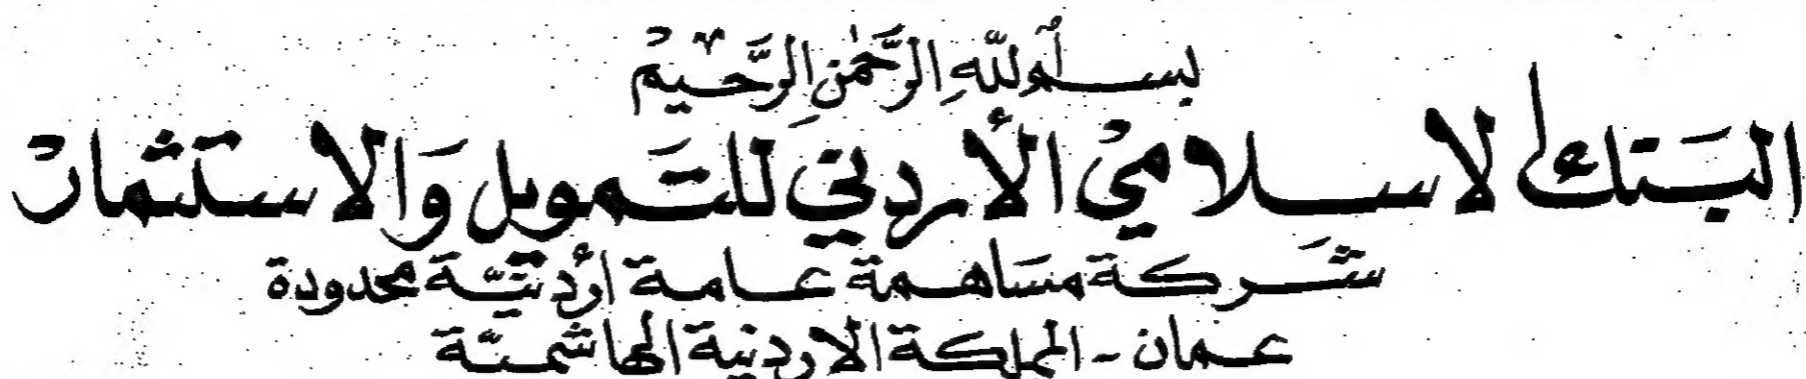 بسم الله الرحمن الرحيم
البنك الاسلامي الأردني للتمويل والاستثمار
شركة مساهمة عامة أردنية محدودة
عمان - المملكة الاردنية الهاشمية